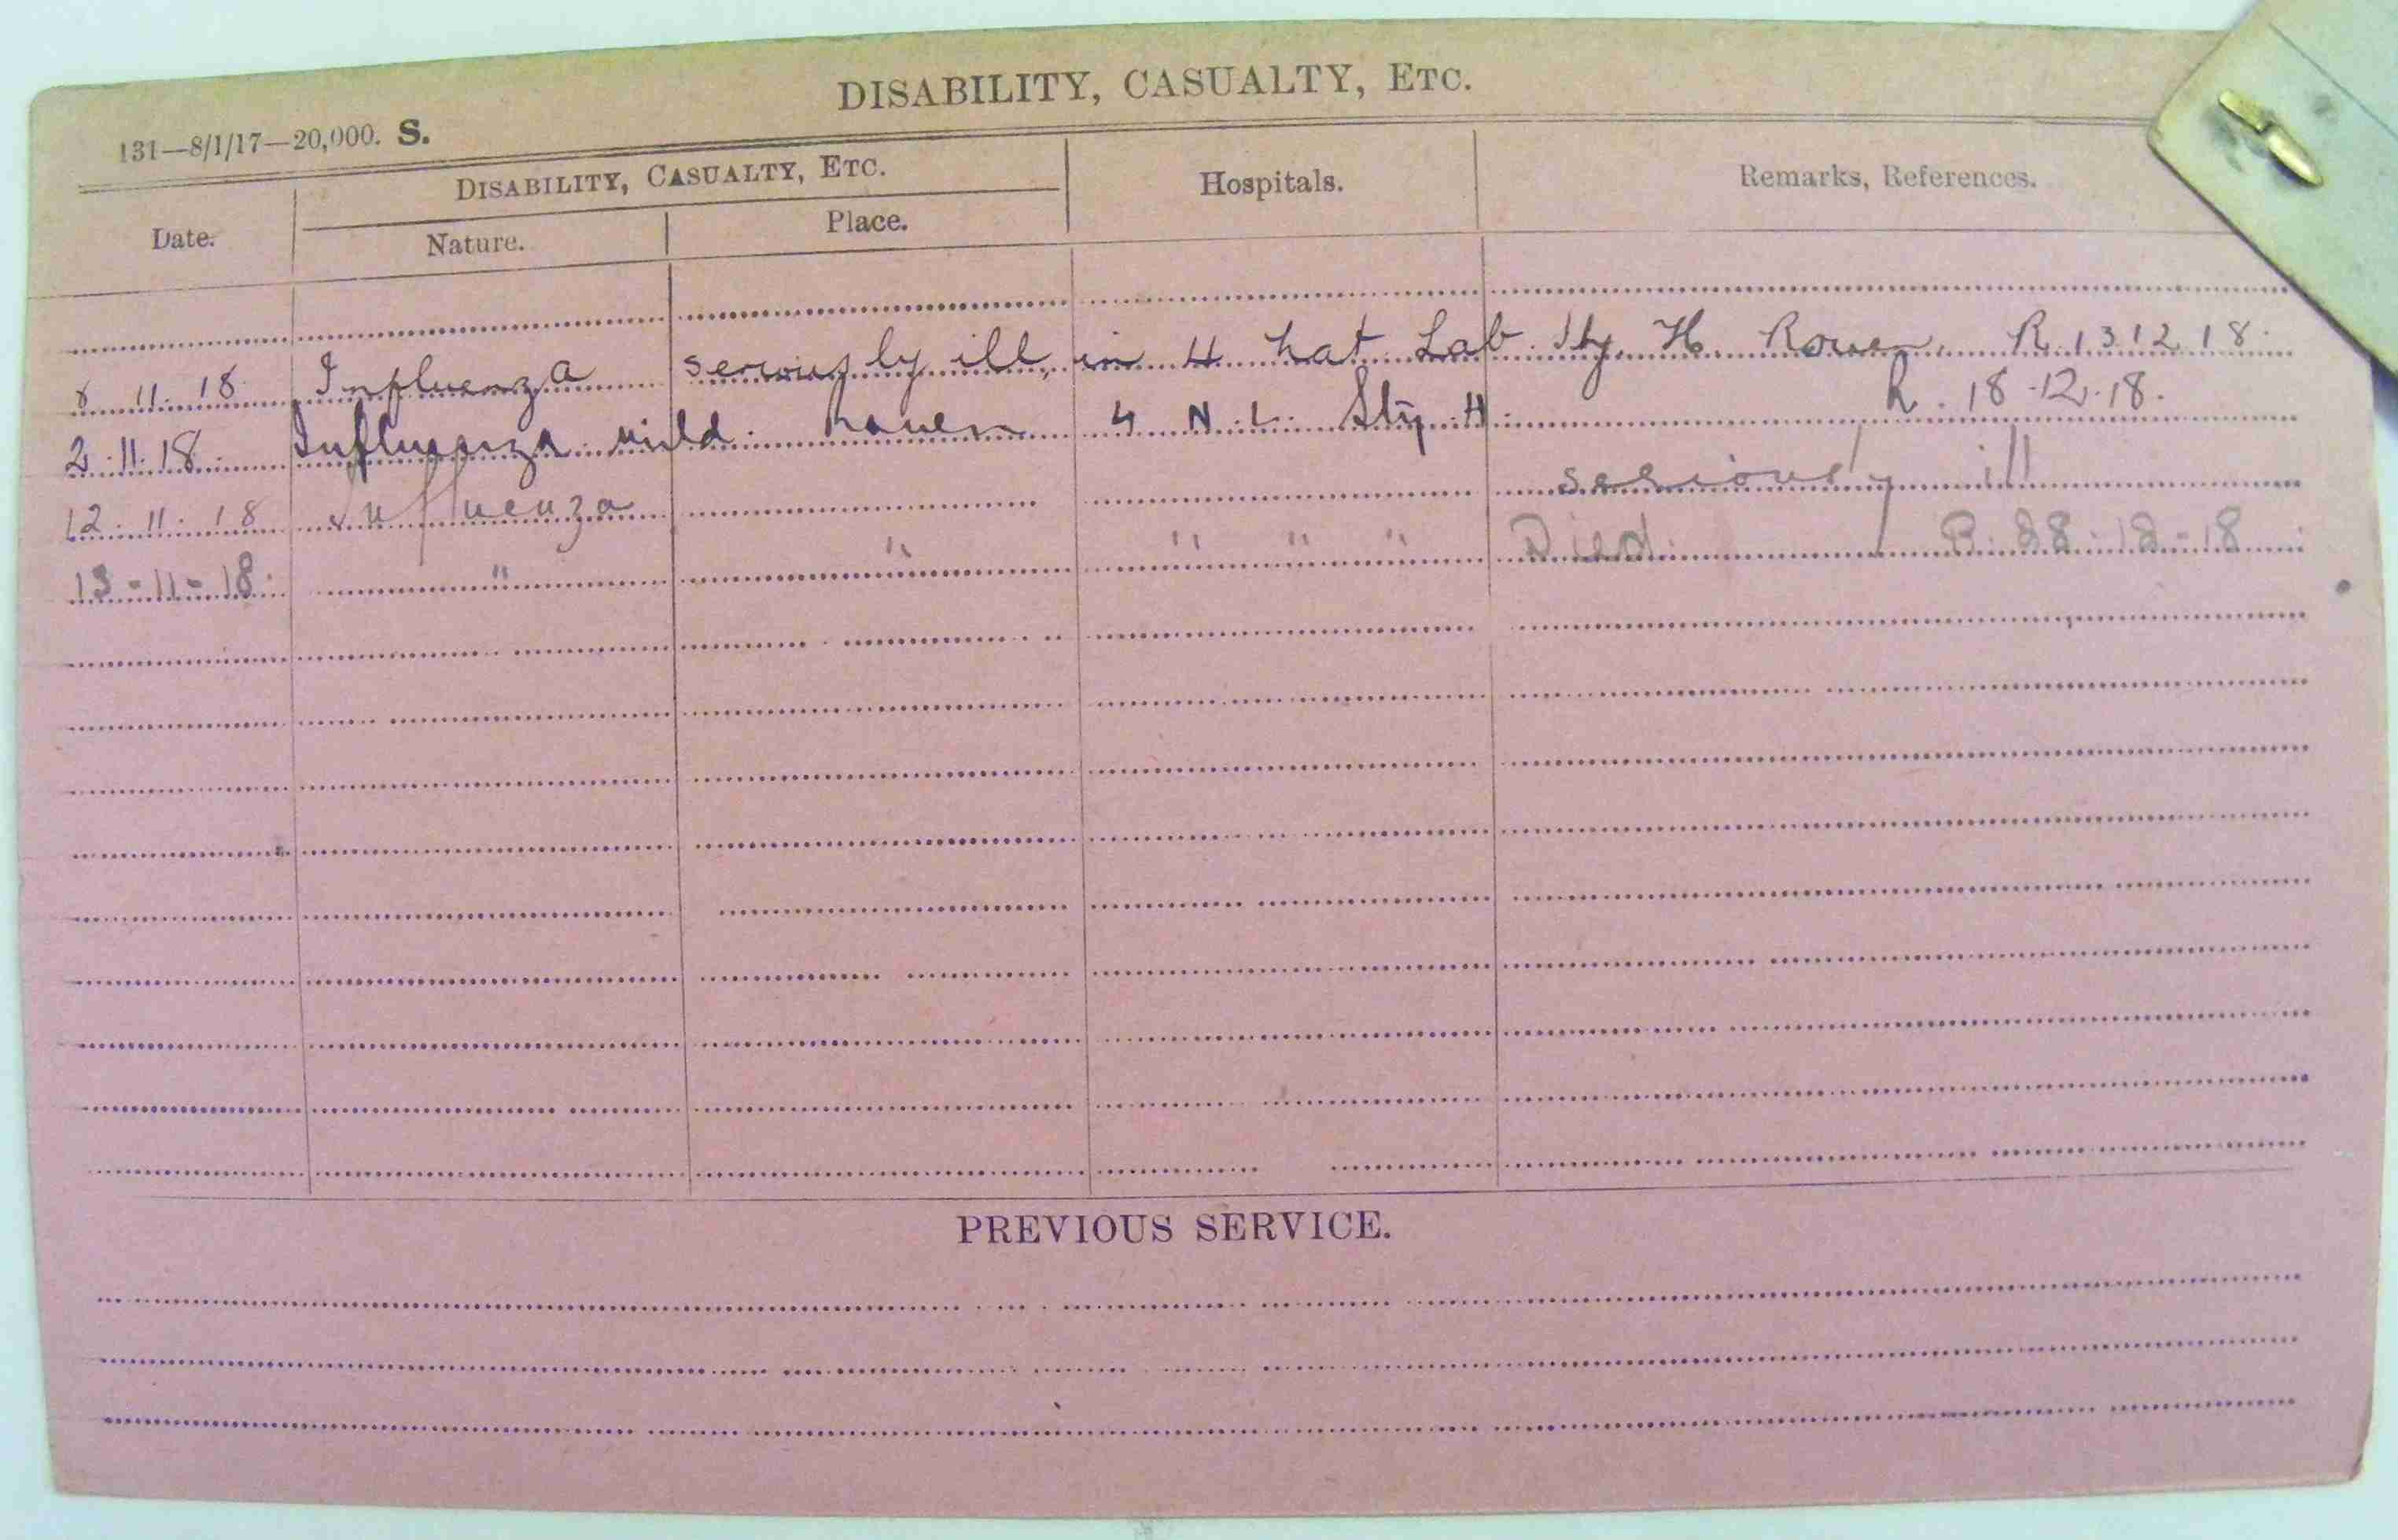 DISABILITY, CASUALTY, ETC.
131—8/1/17—20,000. S.
DISABILITY, CASUALTY, ETC. Hospitals. Remarks, References.
Date. Nature. Place.
8 11. 18 Influenza seriously ill, in 4 Nat. Lab. Sty. H. Rouen. R. 13 12 18.
2.11.18 Influenza mild. Rouen 4 N. L. Sty. H. R. 18-12.18.
12. 11. 18 Influenza seriously ill
13-11-18. " " " " " Died. R. 28-12-18
PREVIOUS SERVICE.